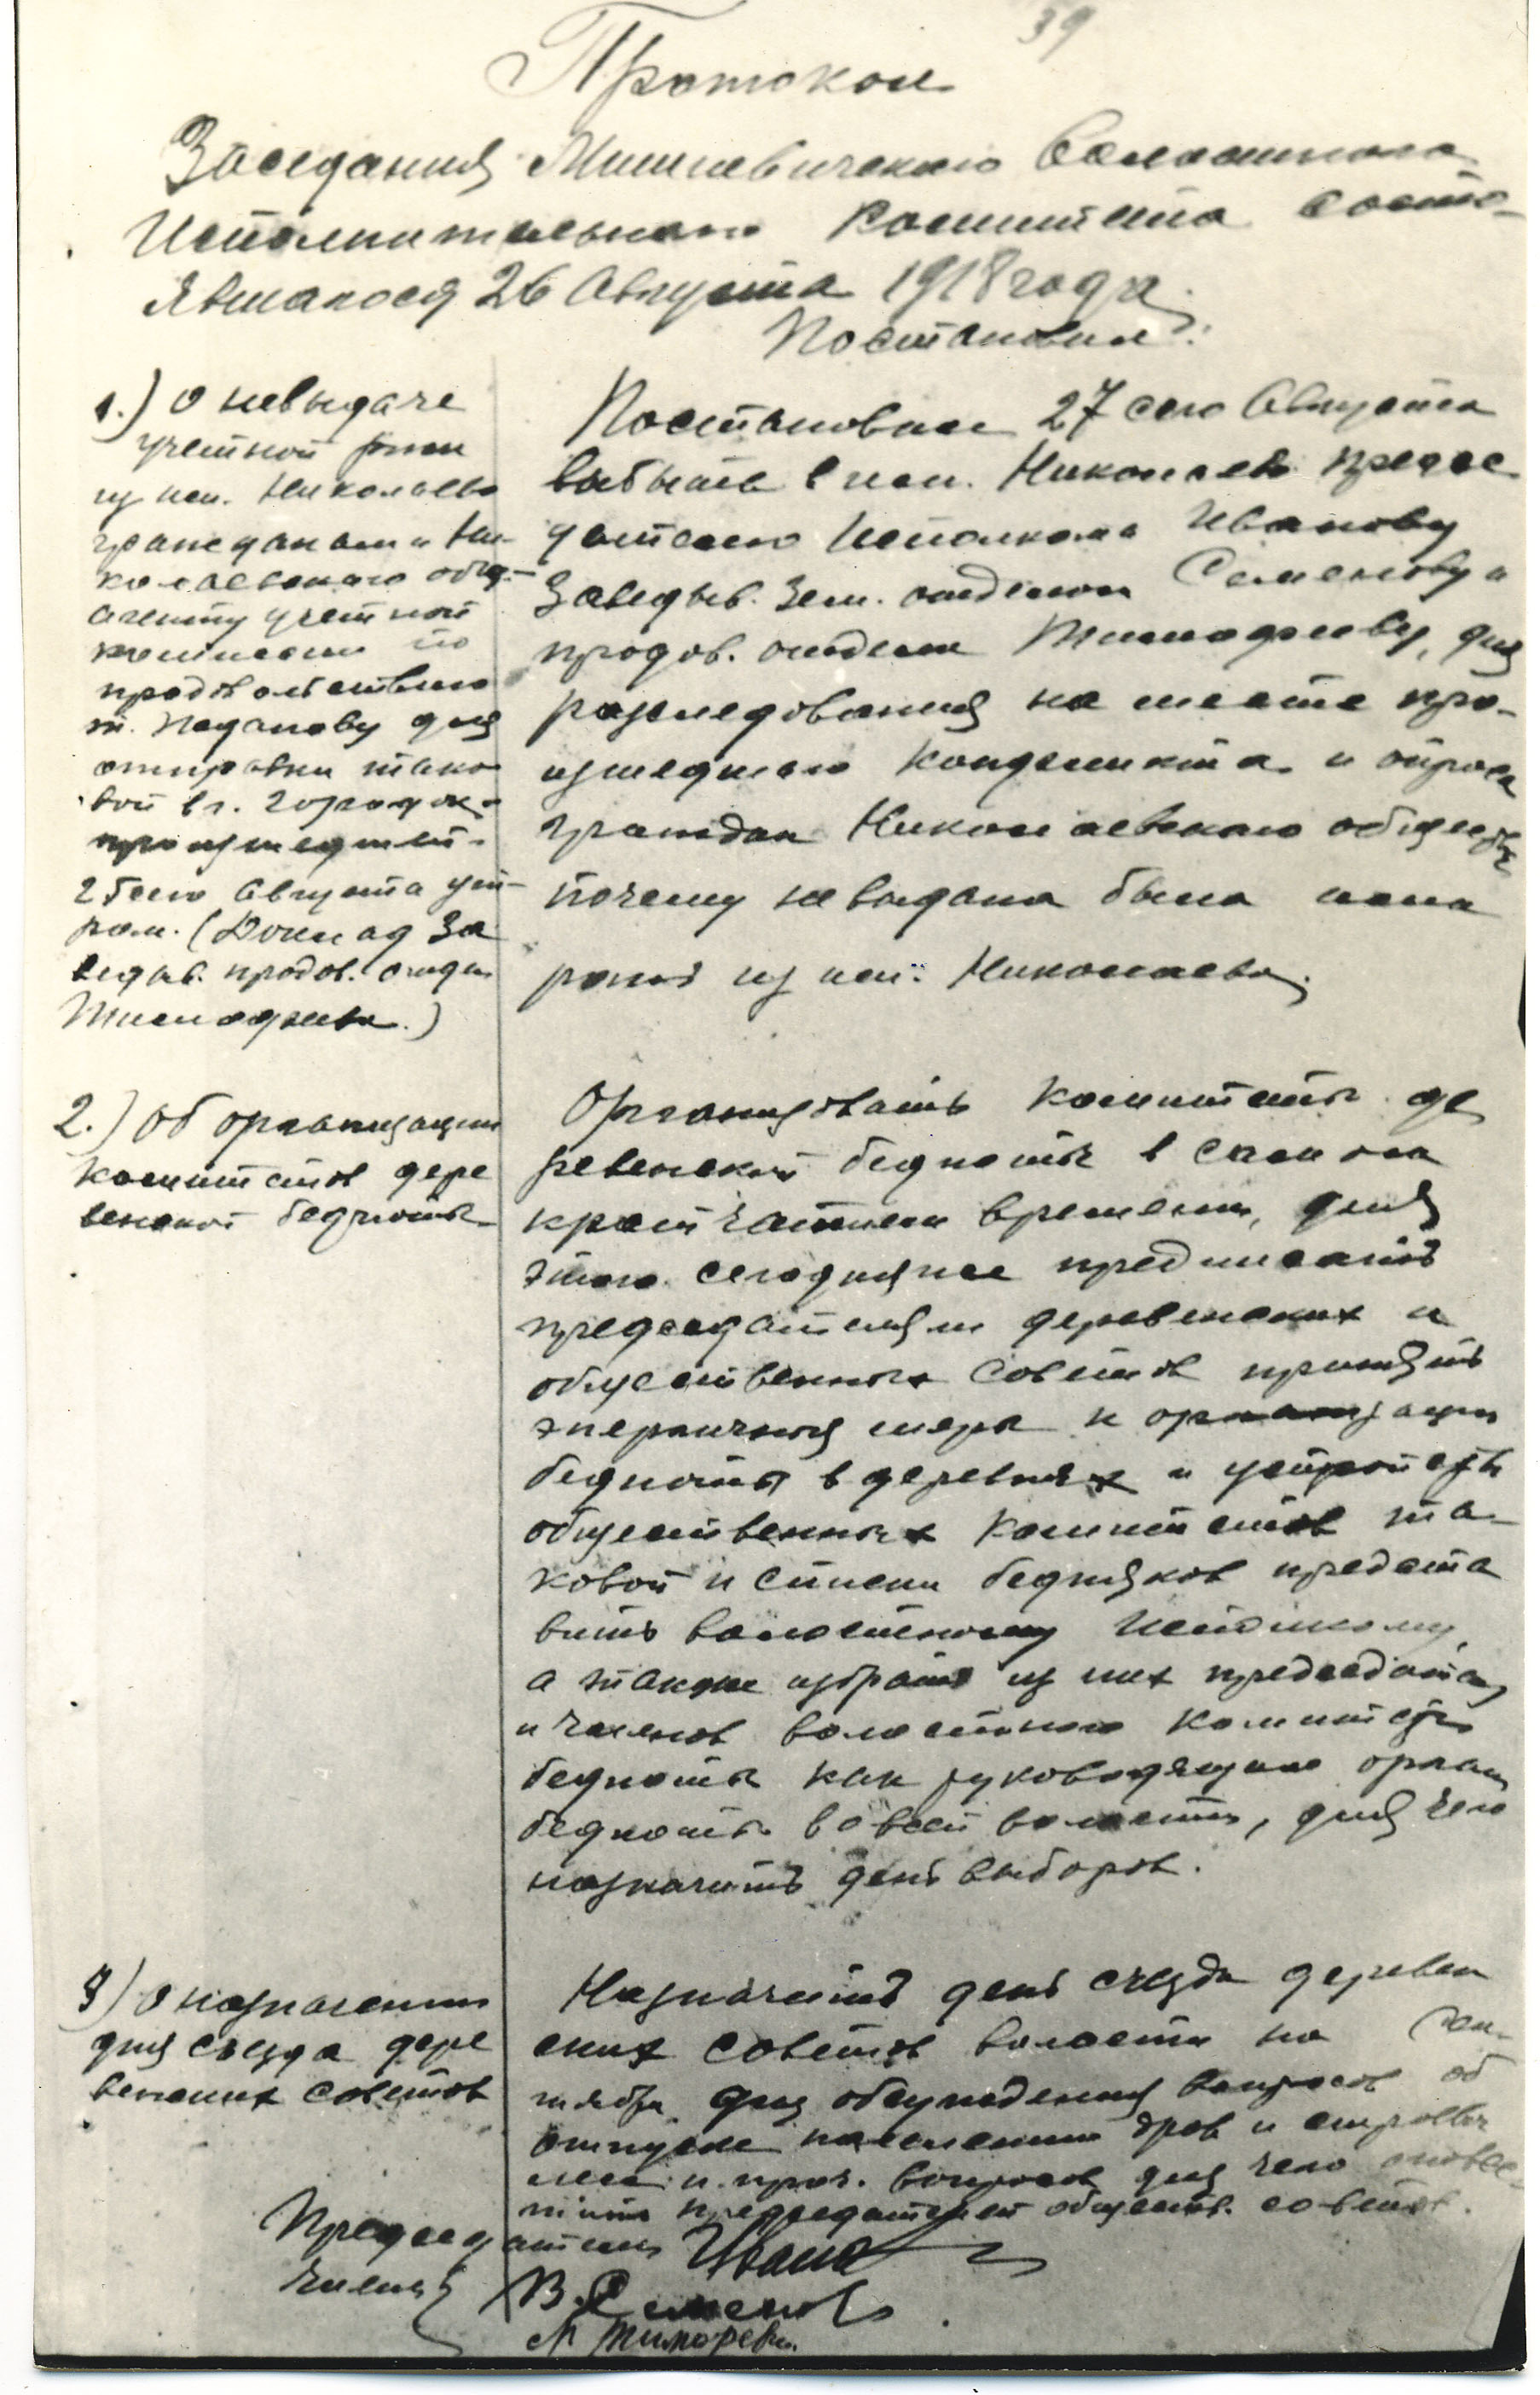 39
Протокол
Заседания Мишневического Волостного
Исполнительного Комитета состо-
явшагося 26 Августа 1918 года.
Постановил:
1.) О невыдаче
учетной ржи
из им. Николаево
гражданами Ни-
колаевского общ.
агенту учетной
комиссии по
продовольствию
т. для
отправки тако
вой в г. Городок,
происшедшей
25 сего Августа ут-
ром. (Доклад За
ведыв. продов. отдел
Тимофеева.)
Постановил 27 сего Августа
выбыть в им. Николаево предсе
дателю Исполкома Иванову
Заведыв. Зем. отделом Семенову и
продов. отделом Тимофееву, для
разследования на месте про-
изшедшаго конфликта и опроса
граждан Николаевского общества
почему не выдана была
рожь из им. Николаево.
2.) Об организации
Комитетов дере
венской бедноты
Организовать комитеты де
ревенской бедноты в самом
кратчайшем времени, для
этого сегодня же предписать
председателям деревенских и
общественных советов принять
энергичныя меры к организации
бедноты в деревнях и устройству
общественных комитетов та-
ковой и списки бедняков предста
вить волостному Исполкому,
а также избрать из них председателя
и членов волостного комитета
бедноты как руководящего органа
бедноты во всей волости, для чего
назначить день выборов.
3) О назначении
дня съезда дере
венских советов
Назначить день съезда деревен
ских советов волости на Сен-
тября для обсуждения вопросов об
отпуске населению дров и строев
леса и проч. вопросов для чего оповес
тить председателей обществ. советов.
Председатель Иванов
Члены { В. Семенов
М Тимофеев